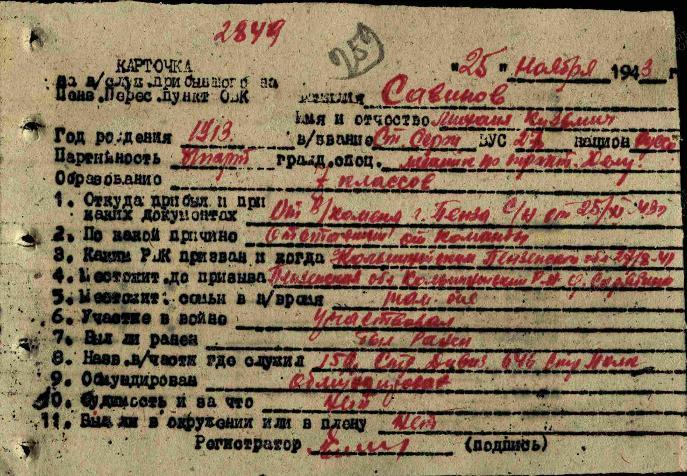 2849
259
КАРТОЧКА
"25" ноября 1943 г
на в/служ. прибывшего на
Пенз. Перес. Пункт ОВК
Фамилия Савинов
Имя и отчество Михаил Кузьмич
Год рождения 1913 в/звание Ст Серж ВУС национ русс
Партийность б/парт гражд.спец.
Образование 7 классов
1. Откуда прибыл и при
каких документах От В/коменд г. Пенза с/н от 25/XI-43г
2. По какой причине отставший от команды
3. Каким РВК призван и когда Колышлейским Пензенской обл
4. Местожит. до призыва Пензенская обл. Колышлейский р-н с.
5. Местожит. семьи в н/время там же
6. Участие в войне участвовал
7. Был ли ранен был ранен
8. Назв. в/части где служил 150 Стр дивиз. Стр полк
9. Обмундирован обмундирован
10. Судимость и за что нет
11. Был ли в окружении или в плену нет
Регистратор (подпись)